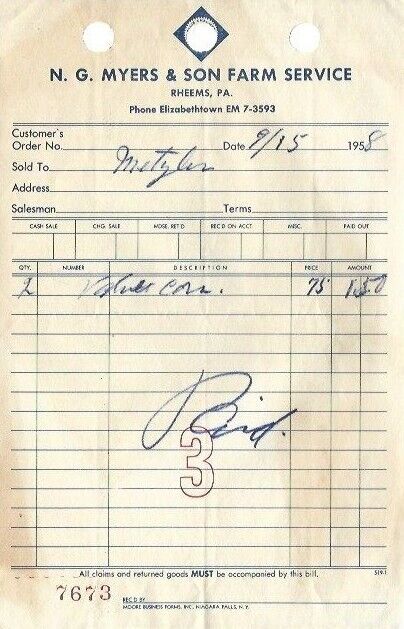 N. G. MYERS & SON FARM SERVICE
RHEEMS, PA.
Phone Elizabethtown EM 7-3593
Customer's
Order No. Date 9/15 1958
Sold To
Address
Salesman Terms
CASH SALE CHG. SALE MDSE. RET'D REC'D ON ACCT MISC. PAID OUT
QTY. NUMBER DESCRIPTION PRICE AMOUNT
2 corn. 75 1.50
Paid.
3
All claims and returned goods MUST be accompanied by this bill. 519-1
7673 REC'D BY
MOORE BUSINESS FORMS, INC., NIAGARA FALLS, N. Y.